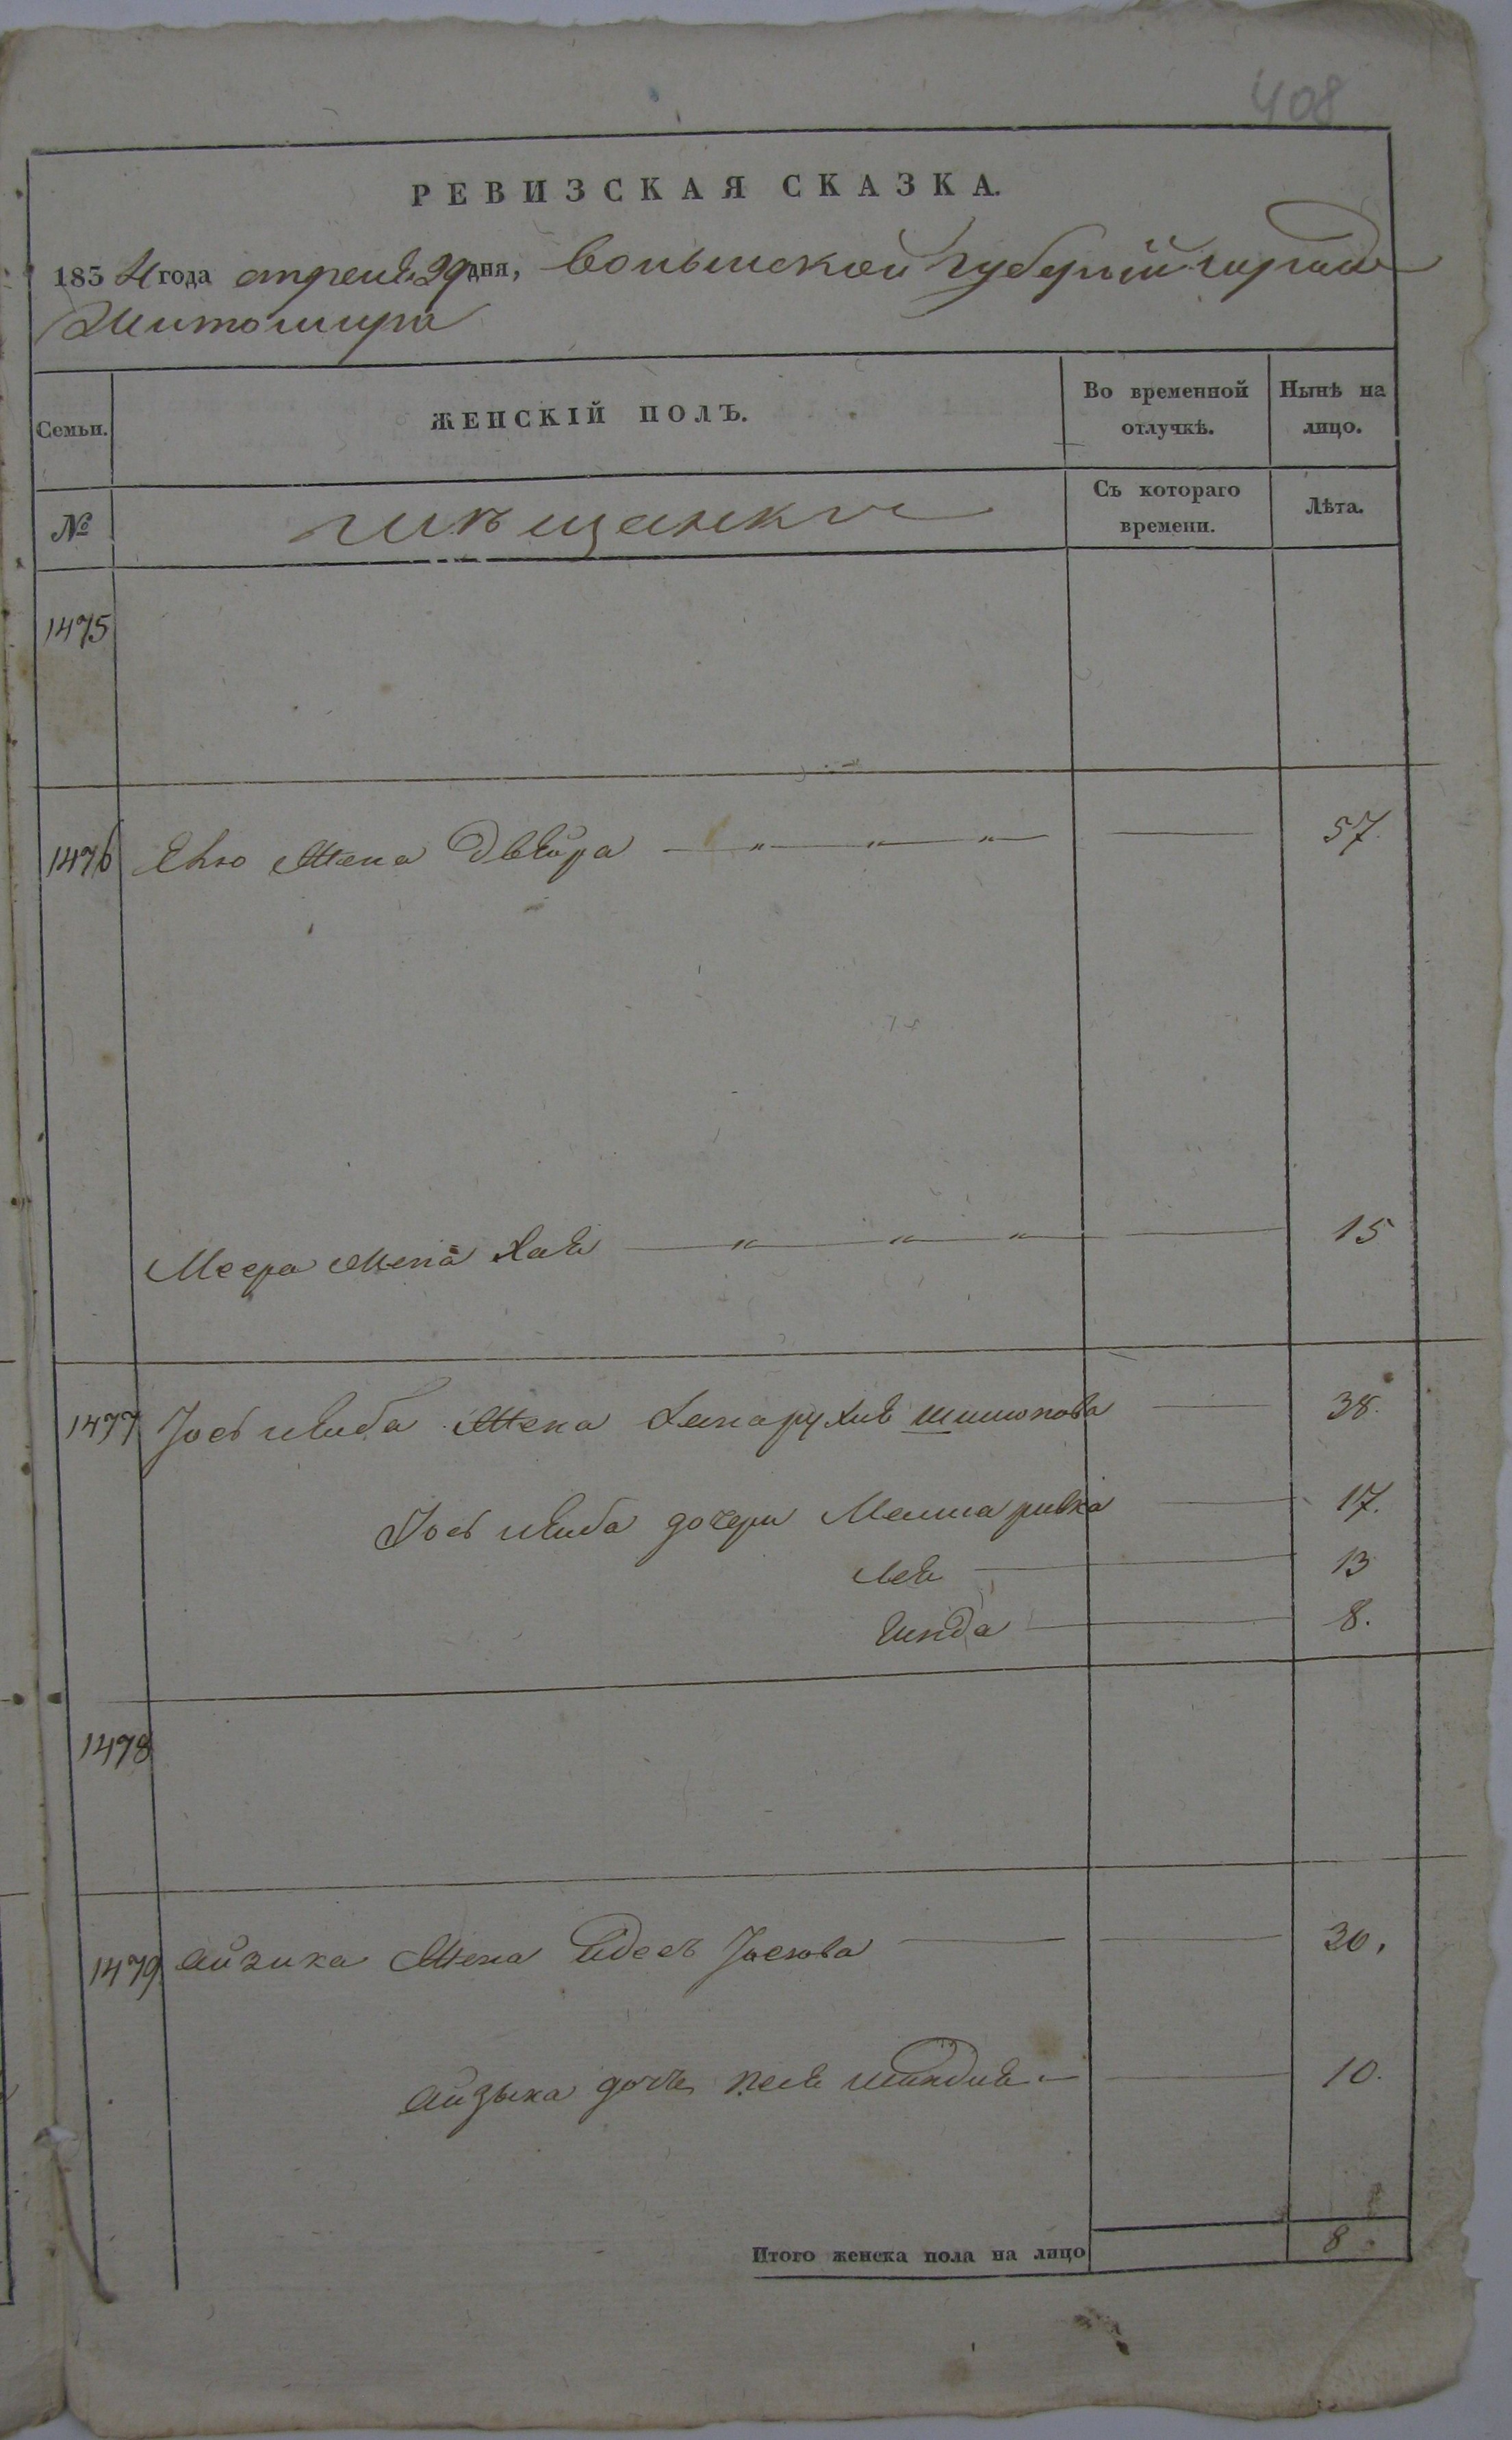 408
РЕВИЗСКАЯ СКАЗКА.
1854 года апреля 29 дня, Волынской губернии города
Житомира
Семьи. ЖЕНСКІЙ ПОЛЪ. Во временной отлучкѣ. Нынѣ на лицо.
№ мѣщанки Съ котораго времени. Лѣта.
1475
1476 Его жена Двейра — „ — „ — „ — — 57.
Меера жена Хая — „ — „ — „ — — 15
1477 Іось Лейба жена Хана Рухля Шимонова — 38.
Іось Лейба дочери Малка Ривка — 17.
Лея — 13
Гинда — 8.
1478
1479 Айзика жена Идесъ Іосева — — 30.
Айзыка дочь Песя — 10.
Итого женска пола на лицо 8.